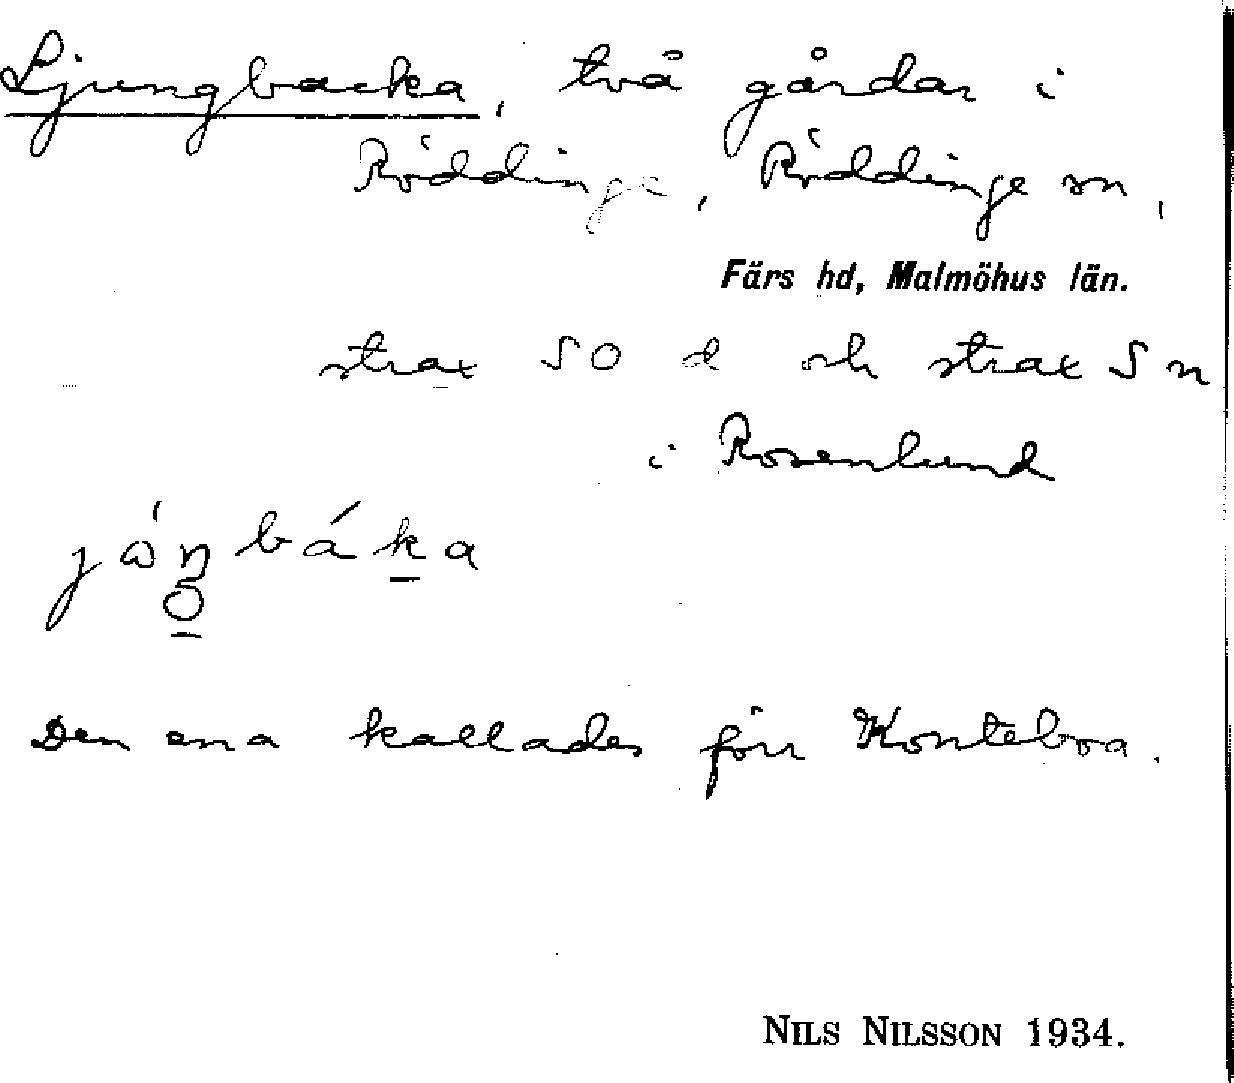 Ljungbacka, två gårdar i
Röddinge, Röddinge sn,
Färs hd, Malmöhus län.
strax SO d och strax S n
i Rosenlund
Den ena kallades förr Konteboa.
NILS NILSSON 1934.